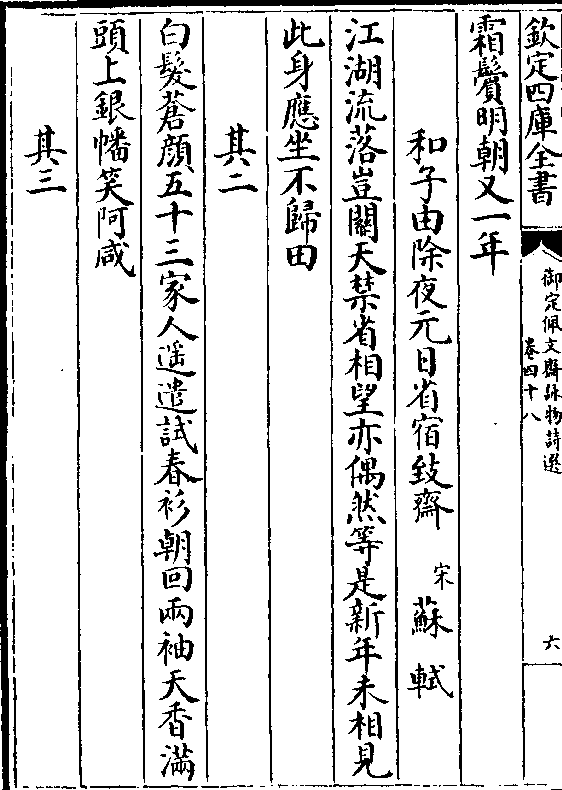 欽定四庫全書
御定佩文齋詠物詩選
卷四十八
六
霜鬢明朝又一年
和子由除夜元日省宿致齋 宋 蘇軾
江湖流落豈關天禁省相望亦偶然等是新年未相見
此身應坐不歸田
其二
白髮蒼顔五十三家人遥遣試春衫朝回兩袖天香滿
頭上銀幡笑阿咸
其三